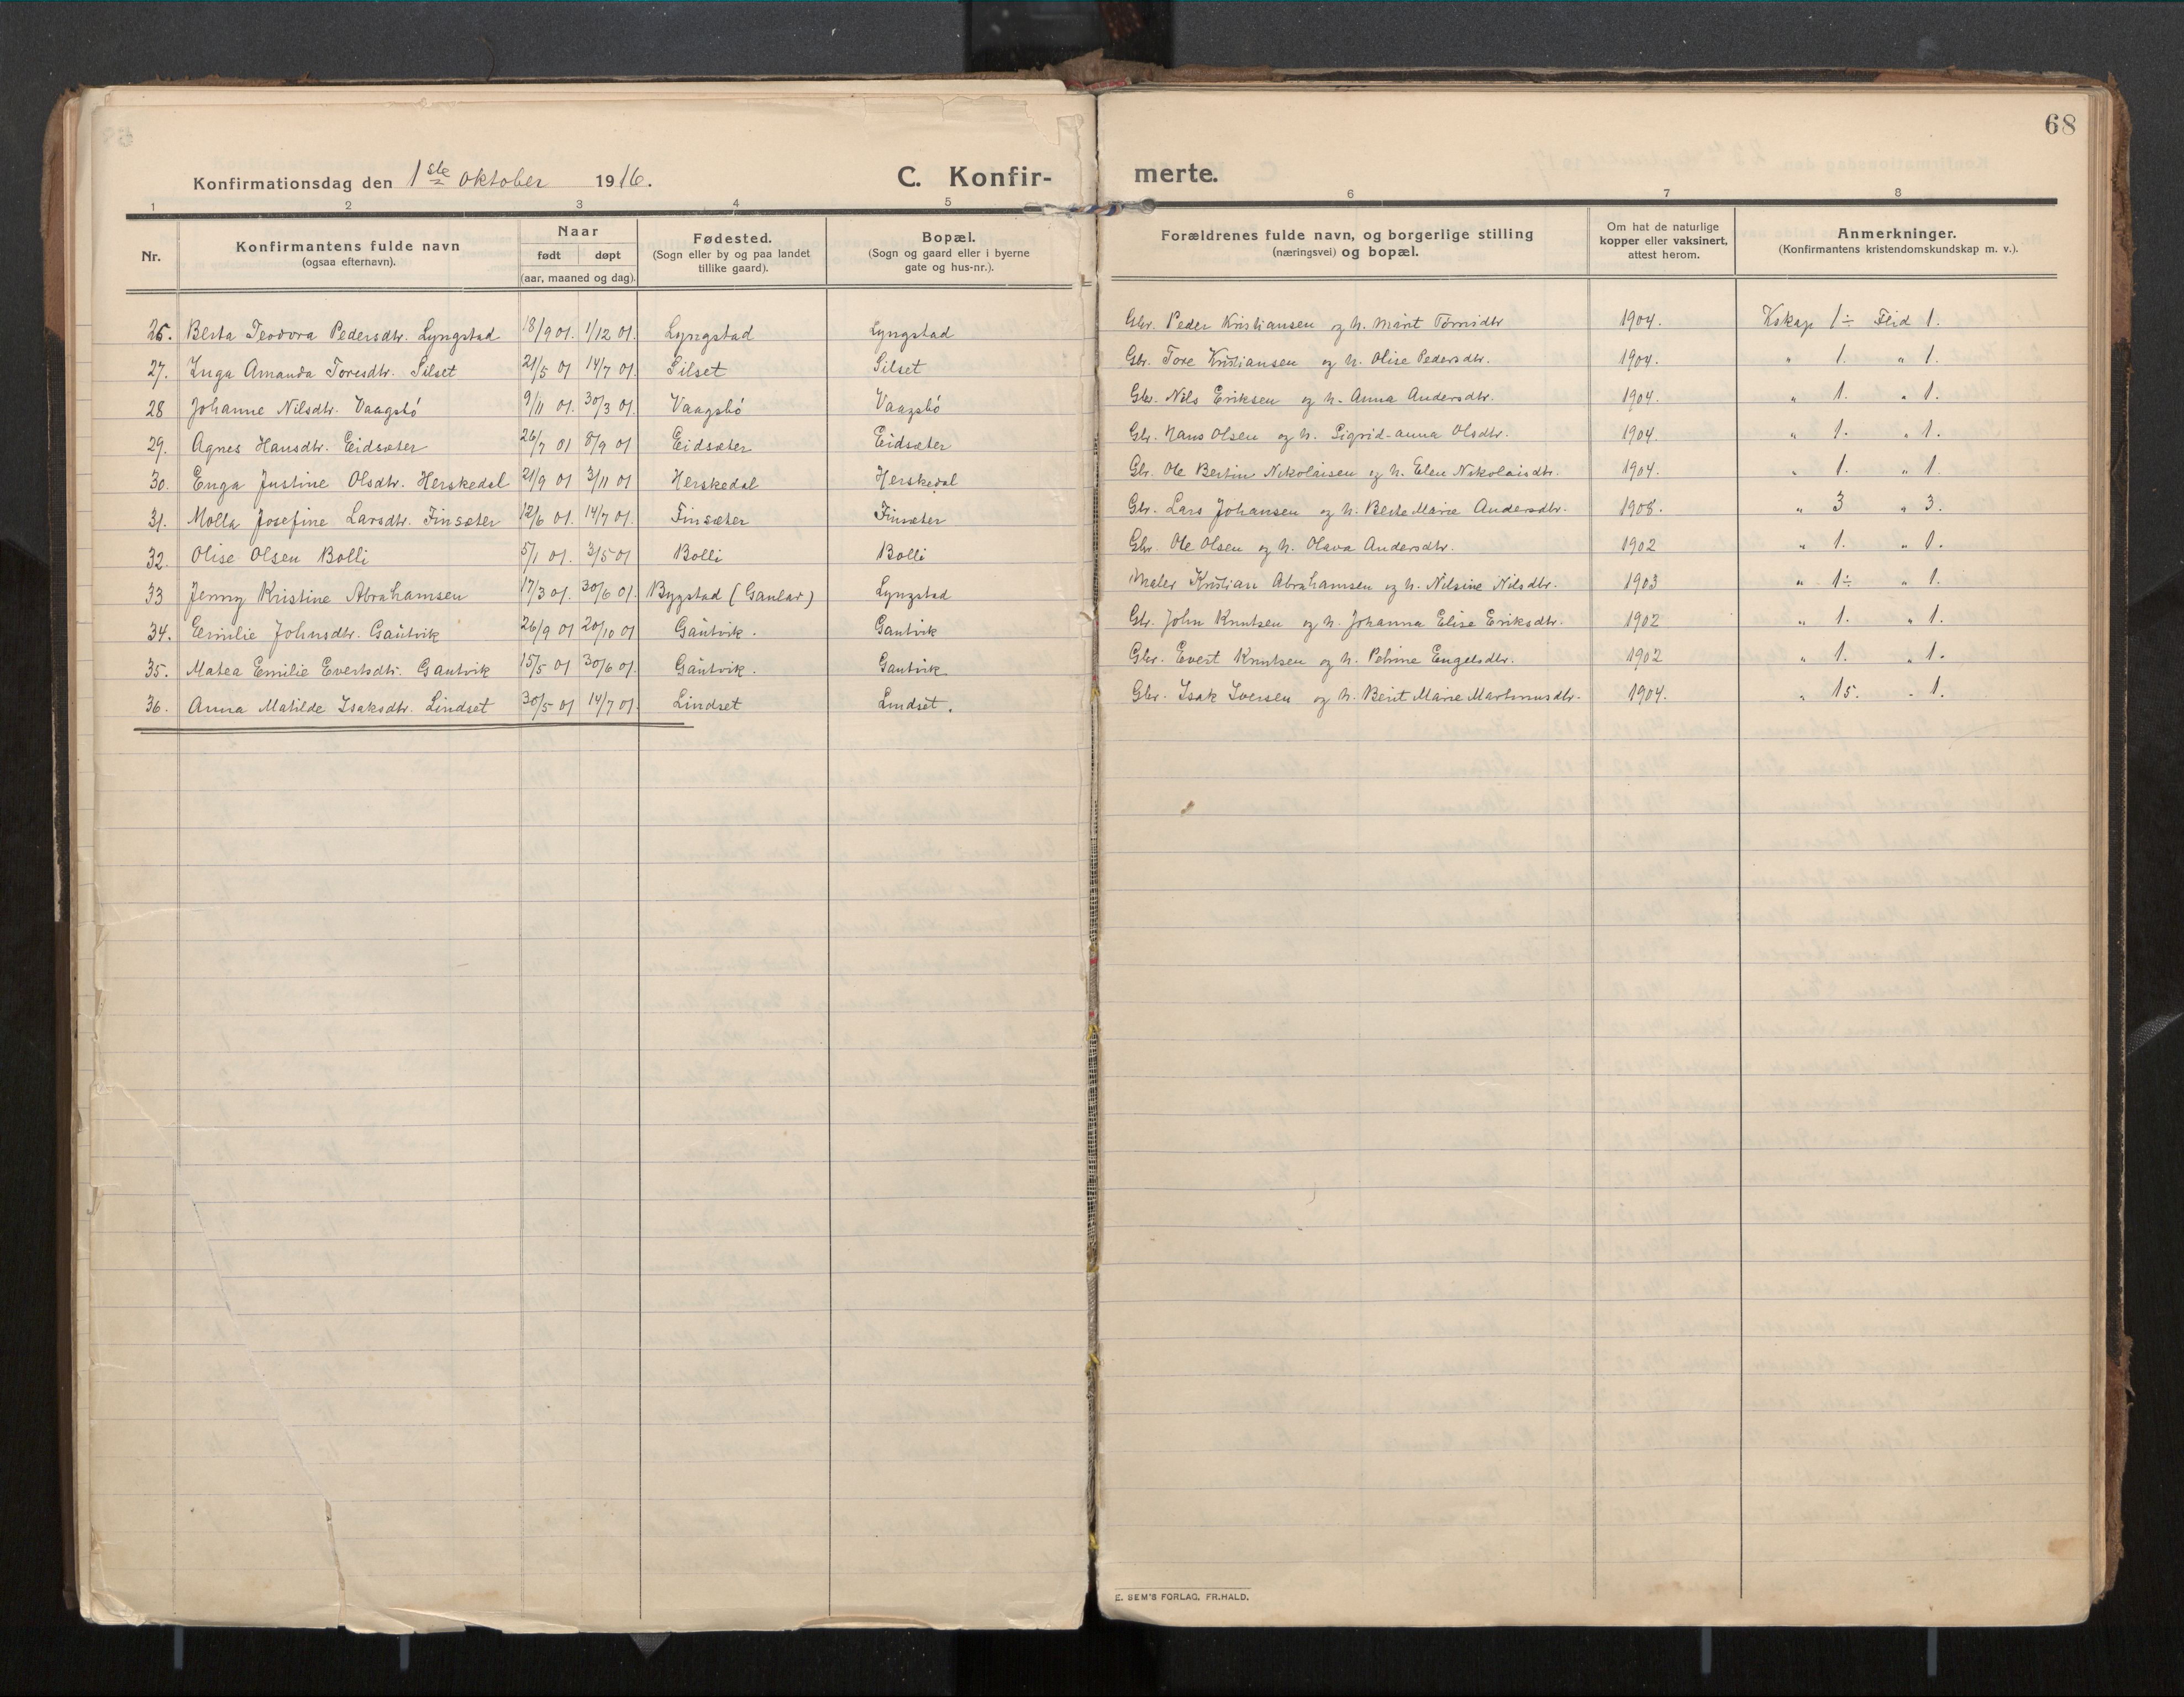 68
Konfirmationsdag den 1ste oktober 1916. C. Konfir- merte.
1 2 3 4 5 6 7 8
Nr. Konfirmantens fulde navn (ogsaa efternavn). Naar født døpt (aar, maaned og dag). Fødested. (Sogn eller by og paa landet tillike gaard). Bopæl. (Sogn og gaard eller i byerne gate og hus-nr.). Forældrenes fulde navn, og borgerlige stilling (næringsvei) og bopæl. Om hat de naturlige kopper eller vaksinert, attest herom. Anmerkninger. (Konfirmantens kristendomskundskap m. v.).
26. Berta Teodora Pedersdtr. Lyngstad 18/9 01. 1/12 01. Lyngstad Lyngstad Gbr. Peder Kristiansen og h. Marit 1904. Kskap 1÷ Flid 1.
27. Inga Amanda Toresdtr. Silset 21/5 01 14/7 01. Silset Silset Gbr. Tore Kristiansen og h. Olise Pedersdtr. 1904. " 1. " 1.
28 Johanne Nilsdtr. Vaagsbó 9/11 01. 30/3 01. Vaagsbó Vaagsbó Gbr. Nils Eriksen og h. Anna Andersdtr. 1904. " 1. " 1.
29. Agnes Hansdtr. Eidsæter 26/7 01 8/9 01 Eidsæter Eidsæter Gbr. Hans Olsen og h. Sigrid-anna Olsdtr. 1904. " 1. " 1.
30. Enga Justine Olsdtr. Herskedal 21/9 01 3/11 01 Herskedal Herskedal Gbr. Ole Bertin Nikolaisen og h. Elen Nikolaisdtr. 1904. " 1. " 1.
31. Molla Josefine Larsdtr. Finsæter 12/6 01. 14/7 01. Finsæter Finsæter Gbr. Lars Johansen og h. Berte Marie Andersdtr. 1908. " 3 " 3.
32. Olise Olsen Bolli 5/1 01. 3/5 01 Bolli Bolli Gbr. Ole Olsen og h. Olava Andersdtr. 1902 " 1. " 1.
33 Jenny Kristine Abrahamsen 17/3 01. 30/6 01. Bygstad (Gaular) Lyngstad Maler Kristian Abrahamsen og h. Nilsine Nilsdtr. 1903 " 1÷ " 1.
34. Emilie Johnsdtr. Gautvik 26/9 01 20/10 01 Gautvik. Gautvik Gbr. John Knutsen og h. Johanna Elise Eriksdtr. 1902 " 1. " 1.
35. Matea Emilie Evertsdtr. Gautvik 15/5 01 30/6 01. Gautvik. Gautvik Gbr. Evert Knutsen og h. Petrine Engelsdtr. 1902 " 1. " 1.
36. Anna Matilde Isaksdtr. Lindset 30/5 01 14/7 01. Lindset Lindset. Gbr. Isak Iversen og h. Berit Marie Martinusdtr. 1904. " 15. " 1.
E. SEM'S FORLAG, FR.HALD.